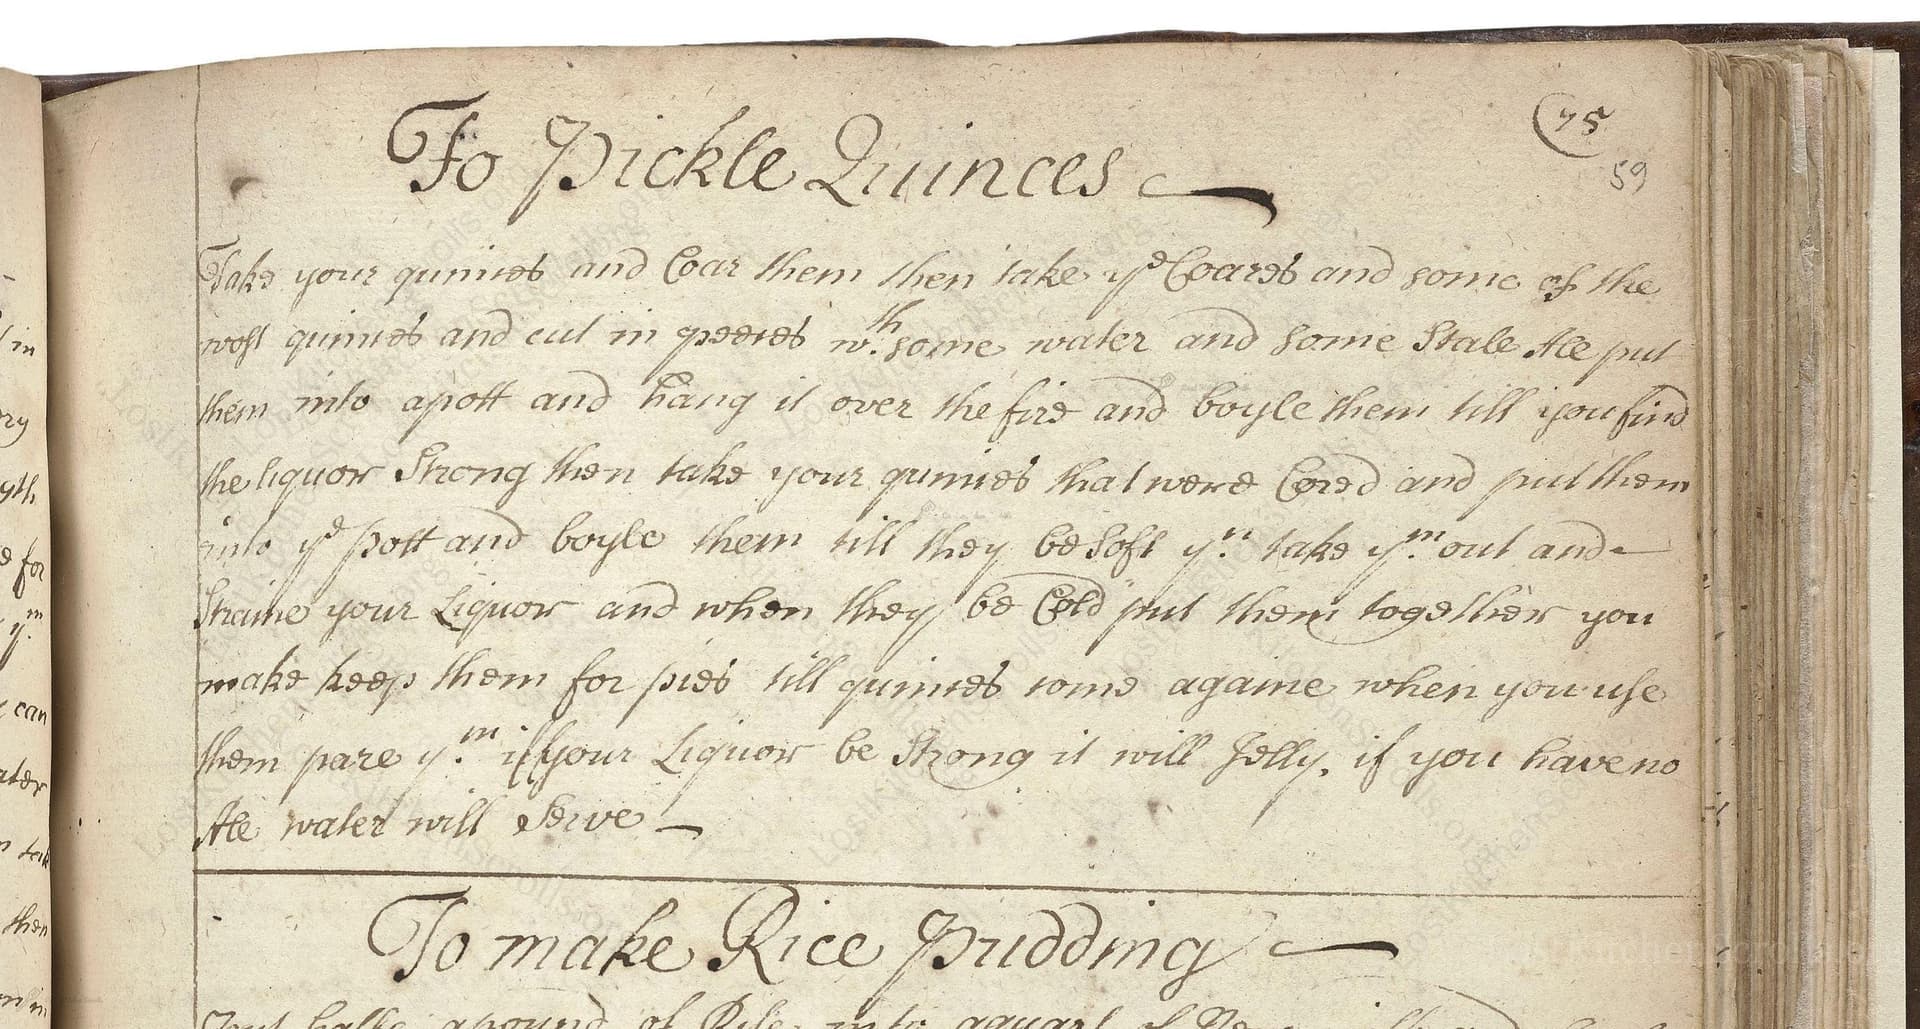 (75
59
To Pickle Quinces
Take your quinces and Coar them then take yᵉ Coares and some of the
wost quinces and cut in peeces wᵗʰ. some water and some Stale Ale put
them into a pott and hang it over the fire and boyle them till you find
the liquor Strong then take your quinces that were Cored and put them
into yᵉ pott and boyle them till they be Soft yⁿ. take yᵐ. out and
Straine your Liquor and when they be Cold put them together you
make keep them for pies till quinces come againe when you use
them pare yᵐ. if your Liquor be Strong it will Jelly. if you have no
Ale water will Serve
To make Rice Pudding
a pound of Rise into a quart of